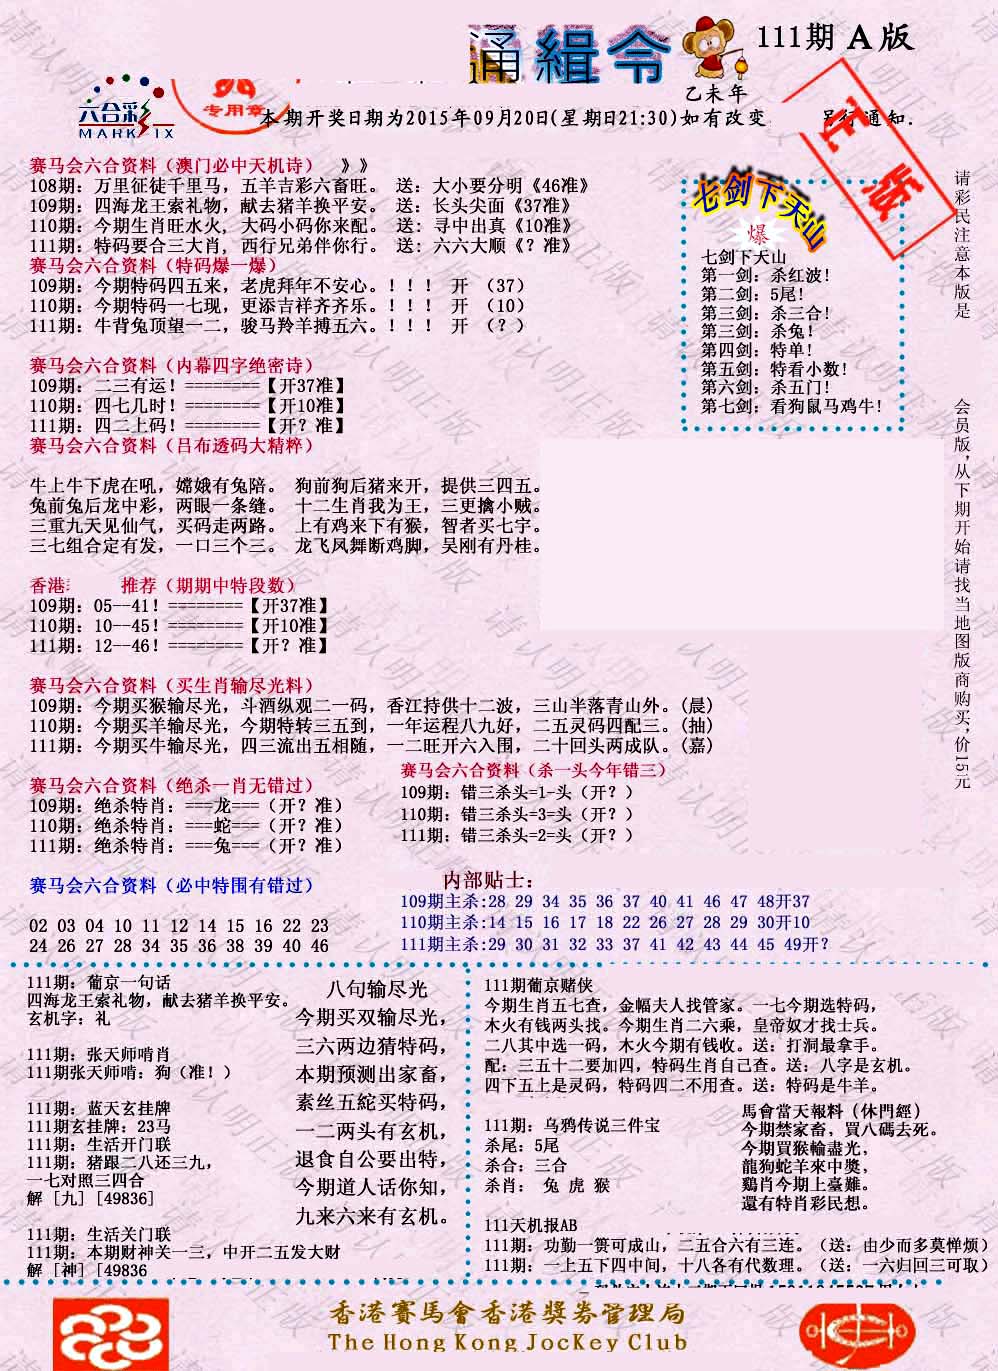 通緝令
111期 A版
乙未年
六合彩
MARK SIX
专用章
本期开奖日期为2015年09月20日(星期日21:30)如有改变 另行通知.
赛马会六合资料（澳门必中天机诗） 》》
108期：万里征徒千里马，五羊吉彩六畜旺。 送：大小要分明《46准》
109期：四海龙王索礼物，献去猪羊换平安。 送：长头尖面《37准》
110期：今期生肖旺水火, 大码小码你来配。 送: 寻中出真《10准》
111期：特码要合三大肖, 西行兄弟伴你行。 送: 六六大顺《？准》
赛马会六合资料（特码爆一爆）
109期：今期特码四五来，老虎拜年不安心。！！！ 开 （37）
110期：今期特码一七现，更添吉祥齐齐乐。！！！ 开 （10）
111期：牛背兔顶望一二，骏马羚羊搏五六。！！！ 开 （？）
赛马会六合资料（内幕四字绝密诗）
109期：二三有运！========【开37准】
110期：四七几时！========【开10准】
111期：四二上码！========【开？准】
赛马会六合资料（吕布透码大精粹）
牛上牛下虎在吼，嫦娥有兔陪。 狗前狗后猪来开，提供三四五。
兔前兔后龙中彩，两眼一条缝。 十二生肖我为王，三更擒小贼。
三重九天见仙气，买码走两路。 上有鸡来下有猴，智者买七字。
三七组合定有发，一口三个三。 龙飞凤舞断鸡脚，吴刚有丹桂。
七剑下天山
爆
七剑下天山
第一剑：杀红波!
第二剑：5尾!
第三剑：杀三合!
第三剑：杀兔!
第四剑：特单!
第五剑：特看小数!
第六剑：杀五门!
第七剑：看狗鼠马鸡牛!
请彩民注意本版是
会员版,从下期开始请找当地图版商购买,价15元
香港 推荐（期期中特段数）
109期：05--41！========【开37准】
110期：10--45！========【开10准】
111期：12--46！========【开？准】
赛马会六合资料（买生肖输尽光料）
109期：今期买猴输尽光，斗酒纵观二一码，香江持供十二波，三山半落青山外。(晨)
110期：今期买羊输尽光，今期特转三五到，一年运程八九好，二五灵码四配三。(抽)
111期：今期买牛输尽光，四三流出五相随，一二旺开六入围，二十回头两成队。(嘉)
赛马会六合资料（绝杀一肖无错过）
109期：绝杀特肖：===龙===（开？准）
110期：绝杀特肖：===蛇===（开？准）
111期：绝杀特肖：===兔===（开？准）
赛马会六合资料（杀一头今年错三）
109期：错三杀头=1-头（开？）
110期：错三杀头=3=头（开？）
111期：错三杀头=2=头（开？）
赛马会六合资料（必中特围有错过）
02 03 04 10 11 12 14 15 16 22 23
24 26 27 28 34 35 36 38 39 40 46
内部贴士：
109期主杀:28 29 34 35 36 37 40 41 46 47 48开37
110期主杀:14 15 16 17 18 22 26 27 28 29 30开10
111期主杀:29 30 31 32 33 37 41 42 43 44 45 49开？
111期：葡京一句话
四海龙王索礼物，献去猪羊换平安。
玄机字：礼
111期：张天师啃肖
111期张天师啃：狗（准！）
111期：蓝天玄挂牌
111期玄挂牌：23马
111期：生活开门联
111期：猪跟二八还三九，
一七对照三四合
解 [九] [49836]
111期：生活关门联
111期：本期财神关一三，中开二五发大财
解 [神] [49836
八句输尽光
今期买双输尽光，
三六两边猜特码，
本期预测出家畜，
素丝五紽买特码，
一二两头有玄机，
退食自公要出特，
今期道人话你知，
九来六来有玄机。
111期葡京赌侠
今期生肖五七查，金幅夫人找管家。一七今期选特码，
木火有钱两头找。今期生肖二六乘，皇帝奴才找士兵。
二八其中选一码，木火今期有钱收。送：打洞最拿手。
配：三五十二要加四，特码生肖自己查。送：八字是玄机。
四下五上是灵码，特码四二不用查。送：特码是牛羊。
111期：乌鸦传说三件宝
杀尾：5尾
杀合：三合
杀肖： 兔 虎 猴
馬會當天報料（休門經）
今期禁家畜，買八碼去死。
今期買猴輸盡光，
龍狗蛇羊來中獎，
鷄肖今期上臺難。
還有特肖彩民想。
111天机报AB
111期：功勤一篑可成山，二五合六有三连。（送：由少而多莫惮烦）
111期：一上五下四中间，十八各有代数理。（送：一六归回三可取）
香港賽馬會香港獎券管理局
The Hong Kong Jockey Club